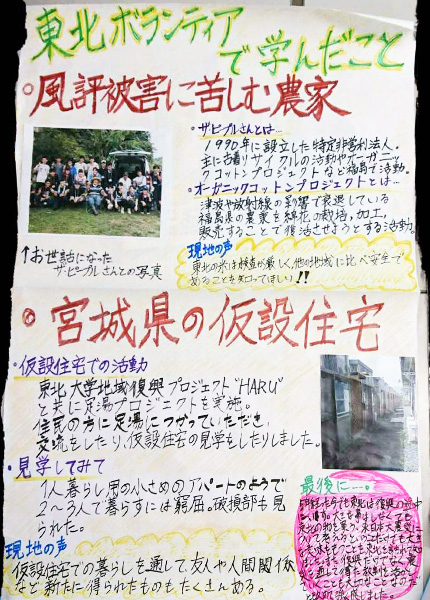 東北ボランティア
で学んだこと
・風評被害に苦しむ農家
・ザ・ピープルさんとは…
1990年に設立した特定非営利法人。
主に古着リサイクルの活動やオーガニッ
クコットンプロジェクトなど福島で活動。
・オーガニックコットンプロジェクトとは…
津波や放射線の影響で衰退している
福島県の農家を綿花の栽培、加工、
販売することで復活させようとする活動。
↑お世話になった
ザ・ピープルさんとの写真
現地の声
東北の米は検査が厳しく、他の地域に比べ安全で
あることを知ってほしい!!
・宮城県の仮設住宅
・仮設住宅での活動
東北大学地域復興プロジェクト"HARU"
と共に足湯プロジェクトを実施。
住民の方に足湯につかっていただき、
交流をしたり、仮設住宅の見学をしたりしました。
・見学してみて
1人暮らし用の小さめのアパートのようで
2～3人で暮らすには窮屈。破損部も見
られた。
現地の声
仮設住宅での暮らしを通して、友人や人間関係
など新たに得られたものもたくさんある。
最後に…。